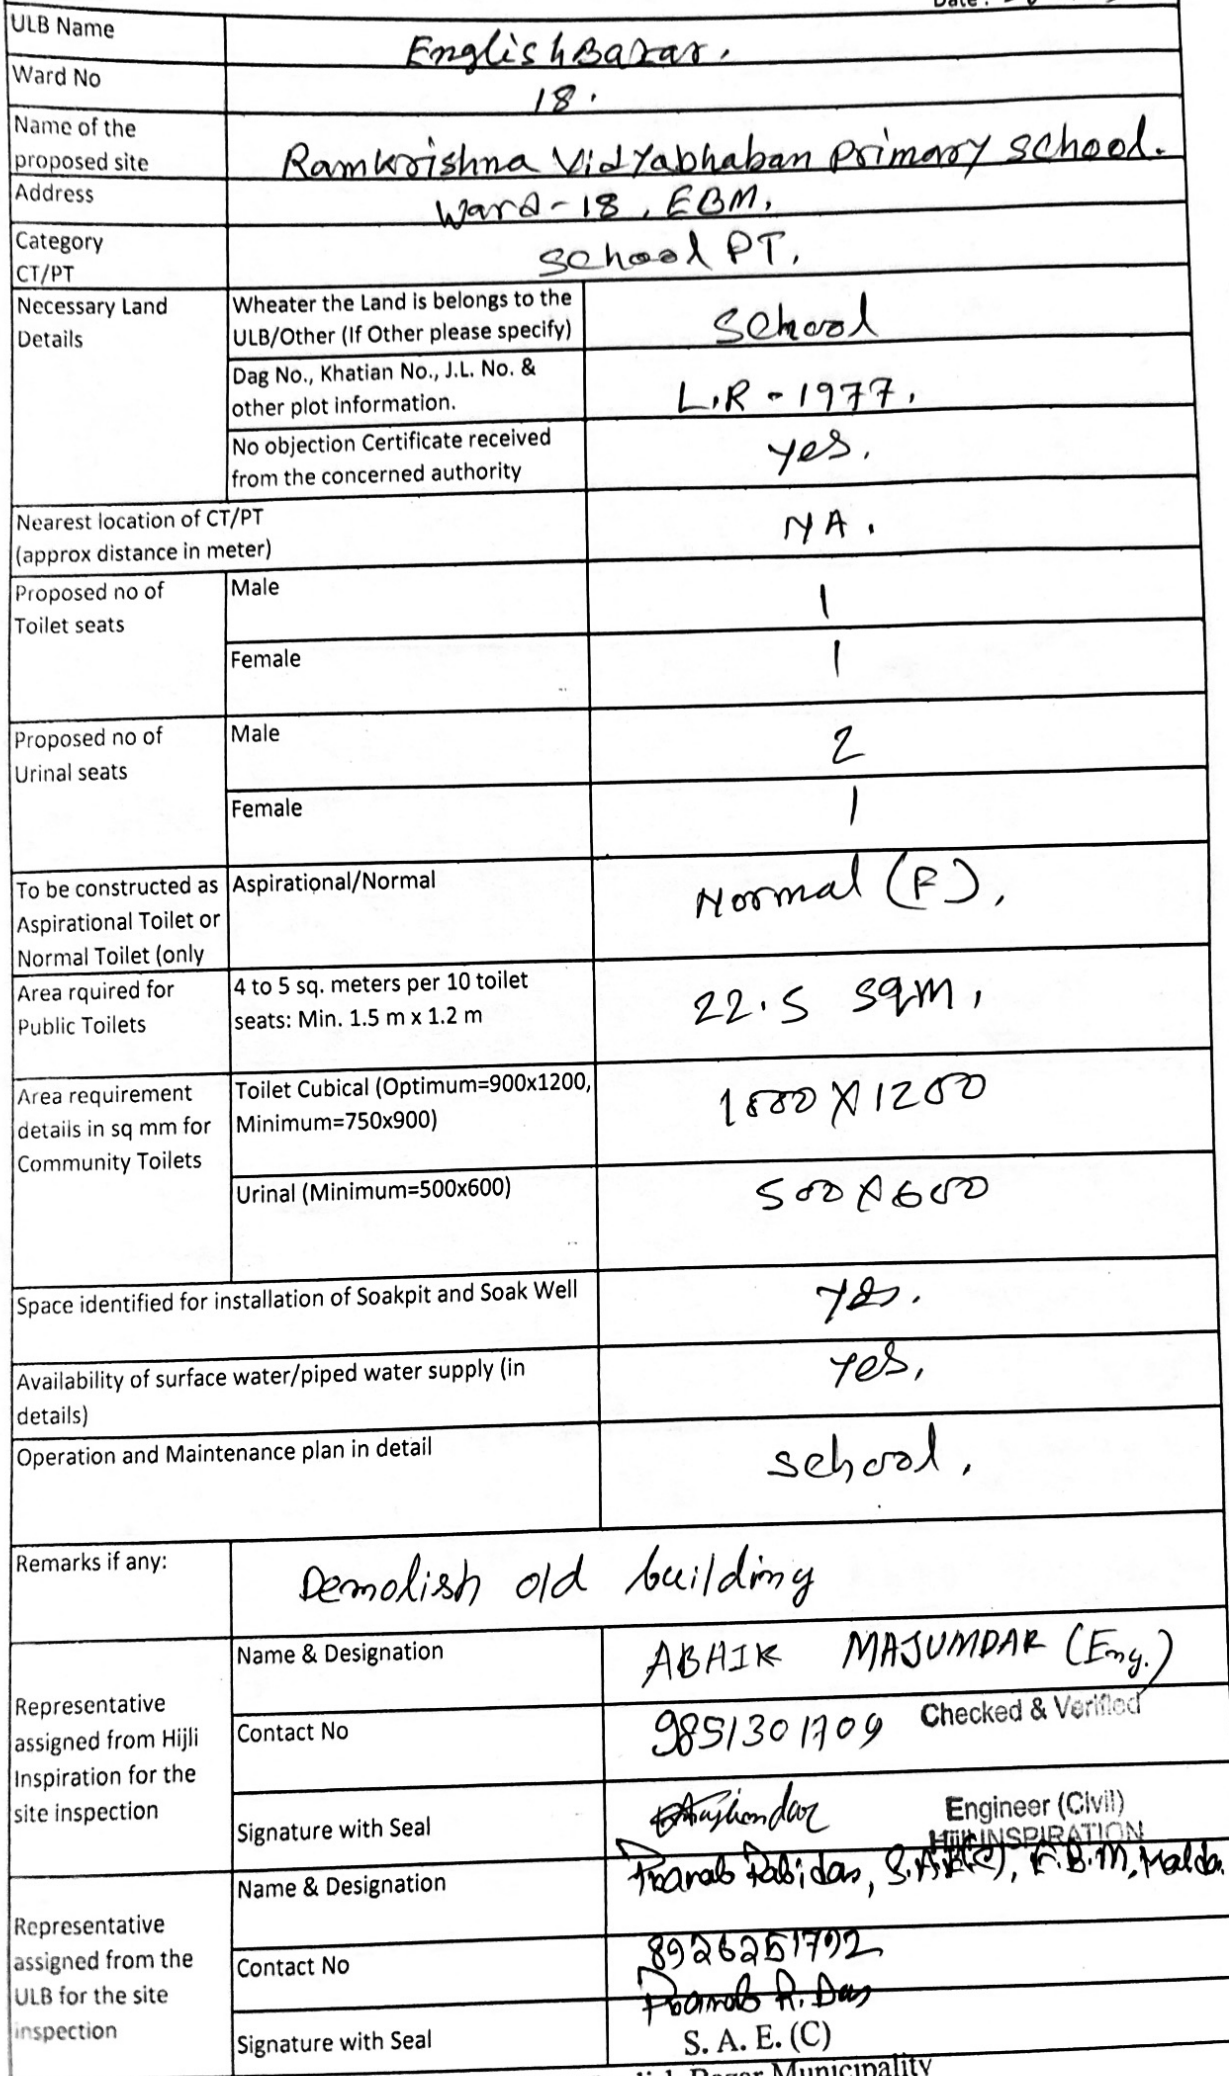 Date :
ULB Name
EnglishBazar.
Ward No
18.
Name of the
proposed site
Ramkrishna Vidyabhaban Primary School.
Address
Ward-18, EBM,
Category
CT/PT
School PT.
Necessary Land
Details
Wheater the Land is belongs to the
ULB/Other (If Other please specify)
School
Dag No., Khatian No., J.L. No. &
other plot information.
L.R - 1977.
No objection Certificate received
from the concerned authority
yes.
Nearest location of CT/PT
(approx distance in meter)
NA.
Proposed no of
Toilet seats
Male
1
Female
1
Proposed no of
Urinal seats
Male
2
Female
1
To be constructed as
Aspirational Toilet or
Normal Toilet (only
Aspirational/Normal
Normal (F),
Area rquired for
Public Toilets
4 to 5 sq. meters per 10 toilet
seats: Min. 1.5 m x 1.2 m
22.5 sqm,
Area requirement
details in sq mm for
Community Toilets
Toilet Cubical (Optimum=900x1200,
Minimum=750x900)
X 1200
Urinal (Minimum=500x600)
500 X 600
Space identified for installation of Soakpit and Soak Well
yes.
Availability of surface water/piped water supply (in
details)
yes,
Operation and Maintenance plan in detail
school.
Remarks if any:
Demolish old building
Representative
assigned from Hijli
Inspiration for the
site inspection
Name & Designation
ABHIK MAJUMDAR (Eng.)
Contact No
9851301709
Checked & Verified
Signature with Seal
Engineer (Civil)
Hijli INSPIRATION
Representative
assigned from the
ULB for the site
inspection
Name & Designation
Pranab Rabidas, S.A.E(C), E.B.M, Malda.
Contact No
8926251792
Signature with Seal
Pranab R. Das
S. A. E. (C)
Bazar Municipality